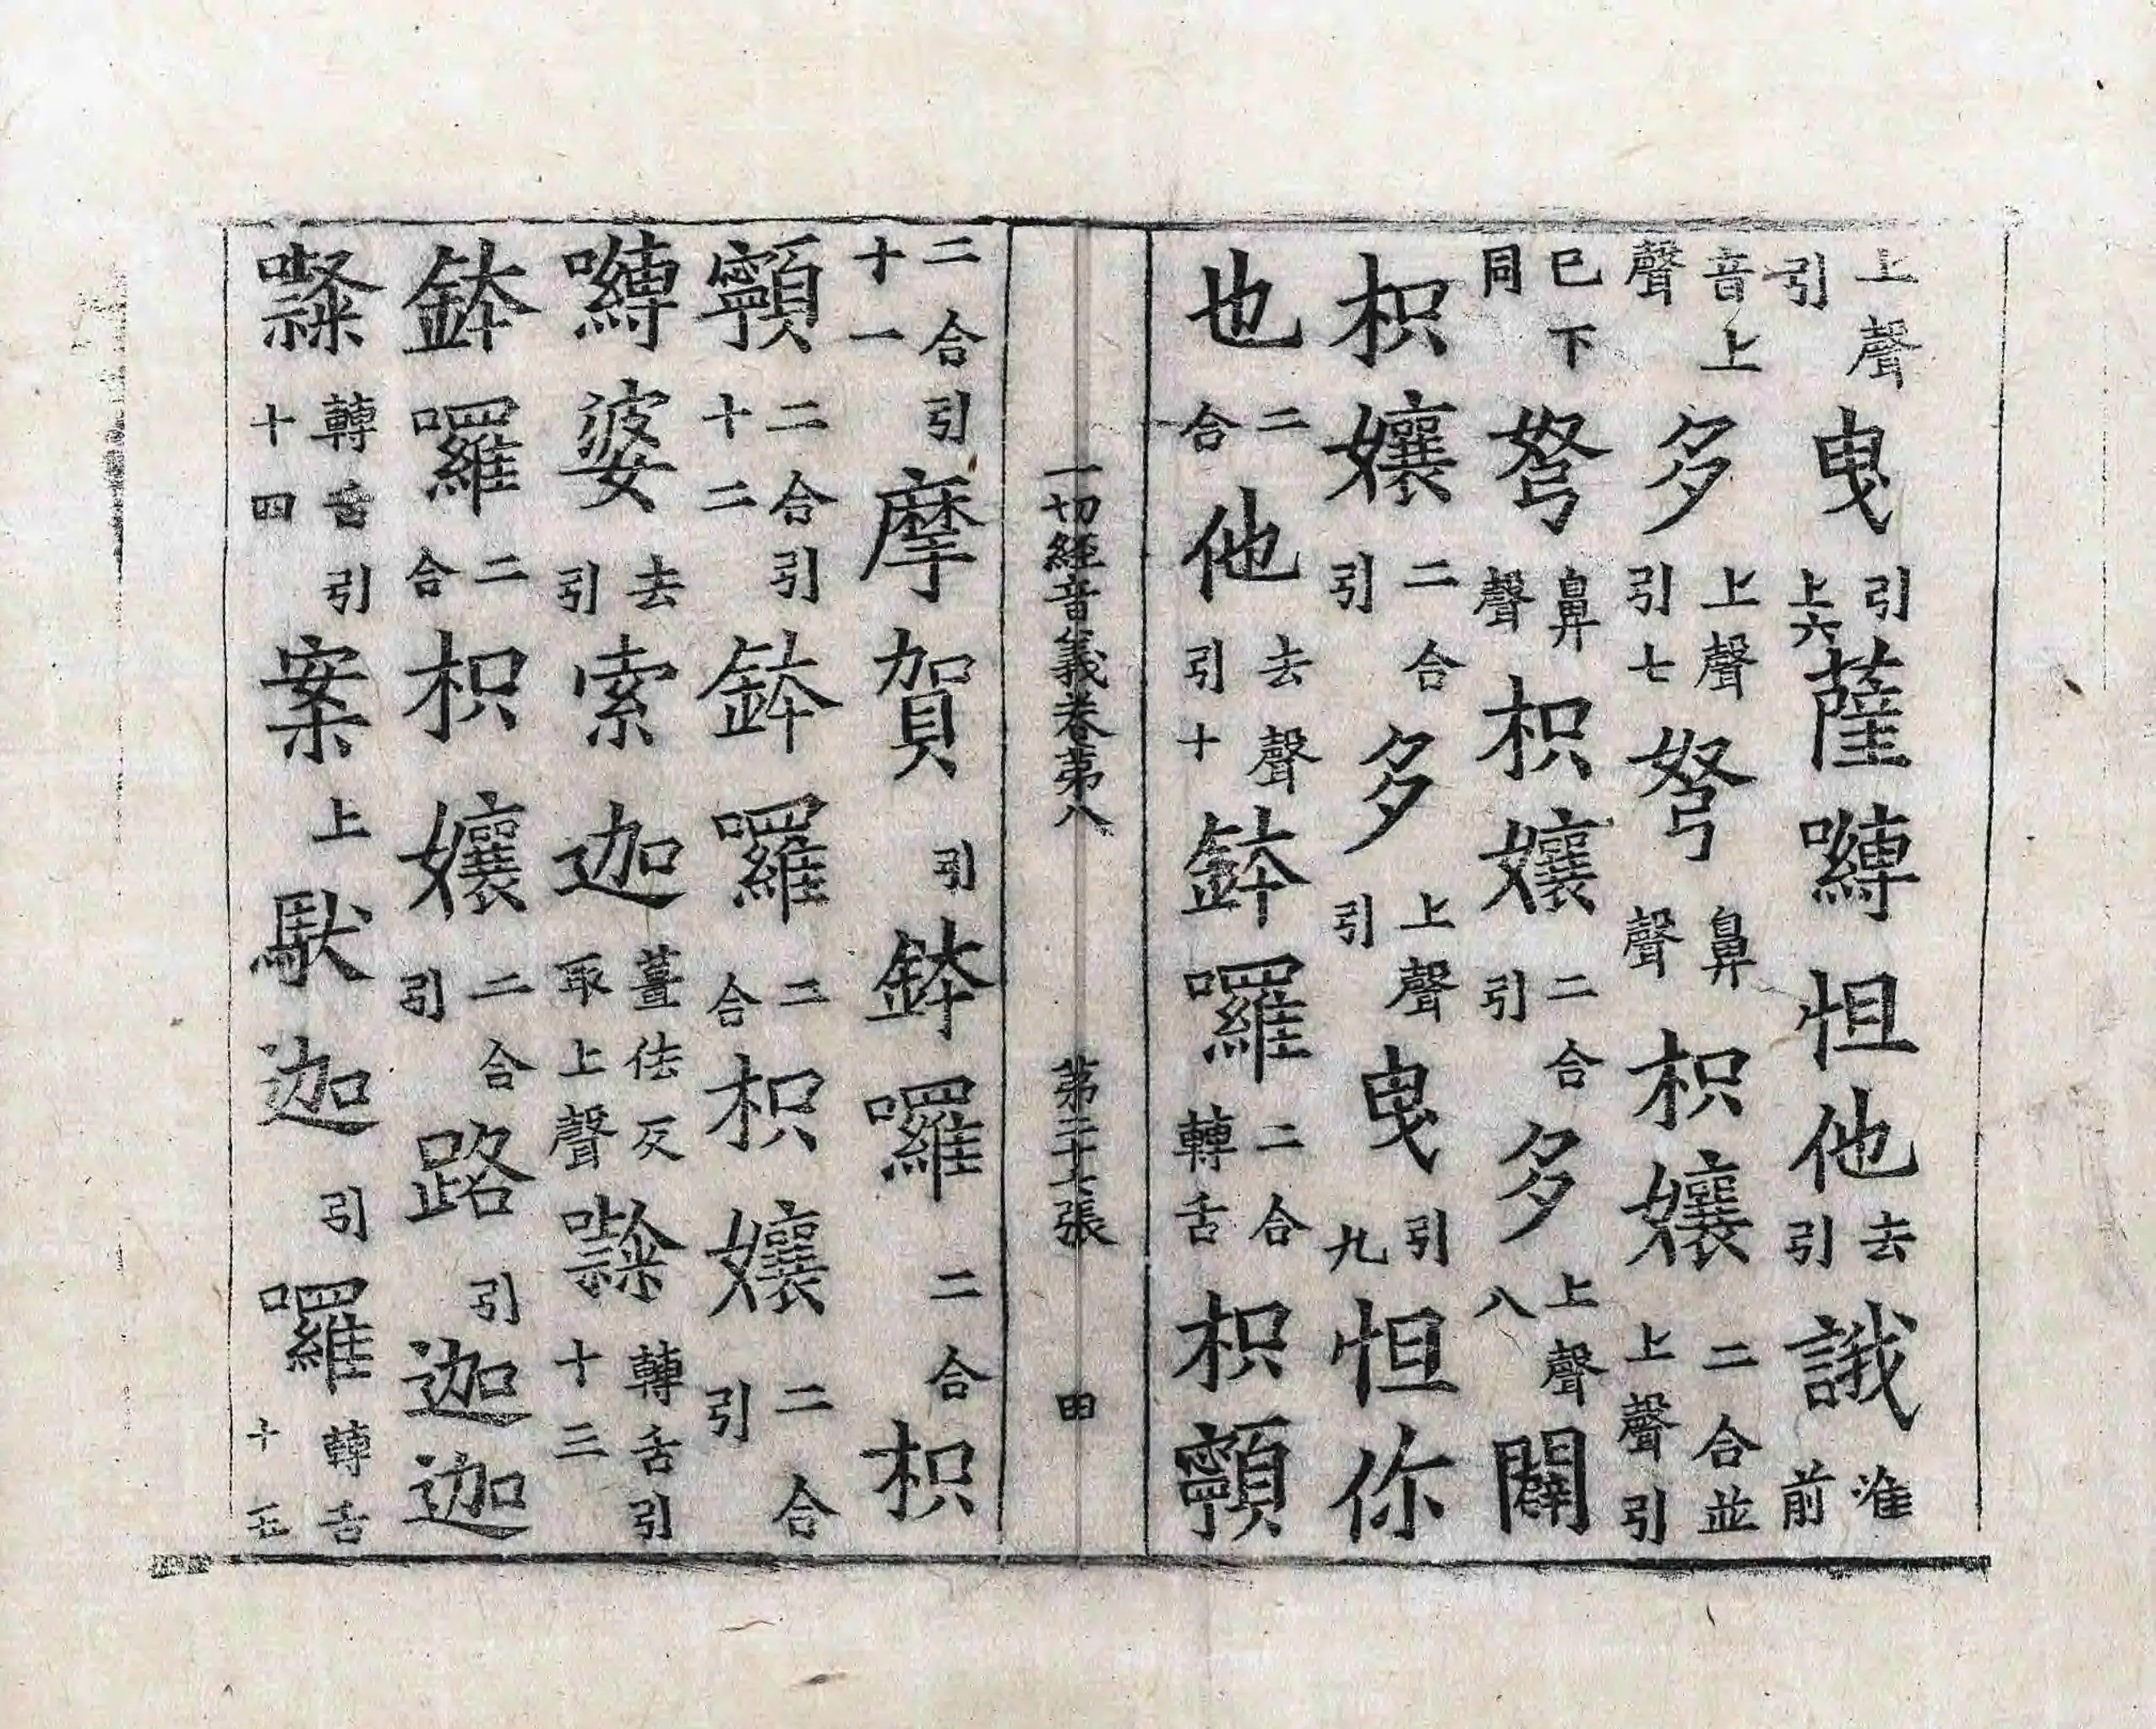 上聲引曳引上六薩嚩怛他去引誐准前
音上聲多上聲引七弩鼻聲枳孃二合並上聲引
已下同弩鼻聲枳孃二合引多上聲八闢
枳孃二合引多上聲引曳引九怛你
也二合他去聲引十鉢囉二合轉舌枳顊
一切經音義卷第八 第二十七張 田
二合引十一摩賀引鉢囉二合枳
顊二合引十二鉢囉二合枳孃二合引
嚩婆去引索迦薑佉反取上聲轉舌引十三
鉢囉二合枳孃二合引路引迦迦
轉舌引十四案上馱迦引囉轉舌十五